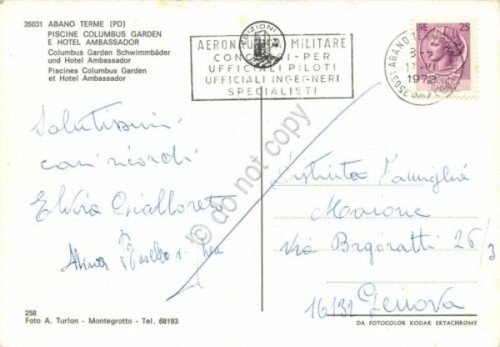 35031 ABANO TERME (PD)
PISCINE COLUMBUS GARDEN
E HOTEL AMBASSADOR
Columbus Garden Schwimmbäder
und Hotel Ambassador
Piscines Columbus Garden
et Hotel Ambassador
AERONAUTICA MILITARE
PER
UFFICIALI PILOTI
UFFICIALI INGEGNERI
SPECIALISTI
35031 ABANO
1972
25
Salutissimi
cari ricordi
Elvia Gialloreto
Distinta Famiglia
Maione
Via Brigoratti 26/3
16132 Genova
© do not copy
258
Foto A. Turlon - Montegrotto - Tel. 68193
DA FOTOCOLOR KODAK EKTACHROME